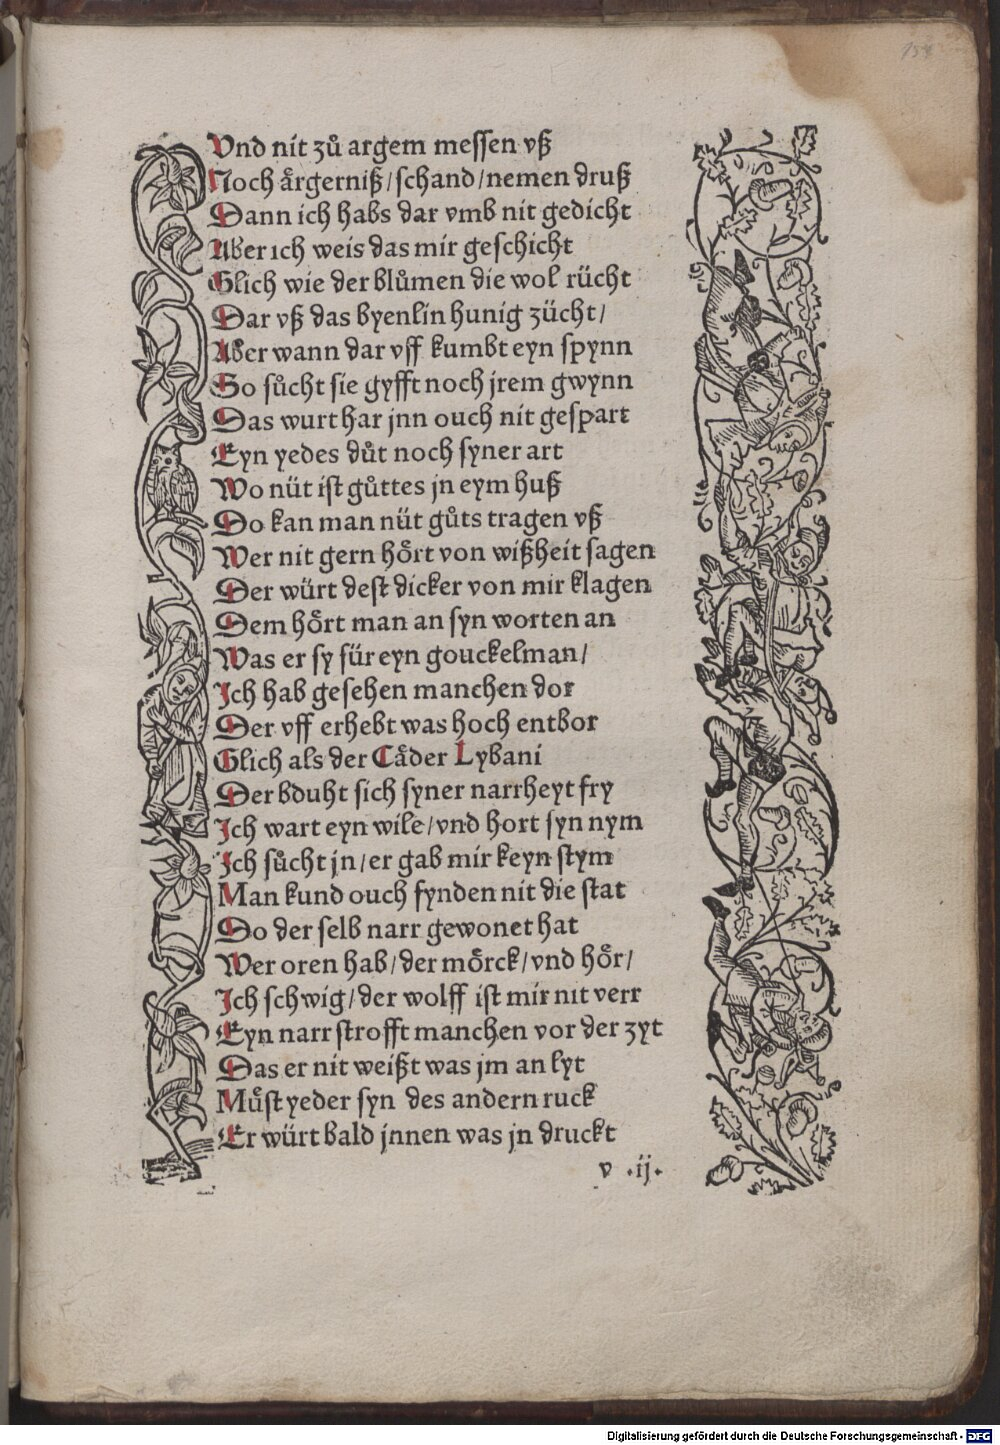 Vnd nit zů argem messen vß
Noch aͤrgerniß/schand/nemen druß
Dann ich habs dar vmb nit gedicht
Aber ich weis das mir geschicht
Glich wie der blůmen die wol rücht
Dar vß das byenlin hunig zücht/
Aber wann dar vff kumbt eyn spynn
So sůcht sie gyfft noch jrem gwynn
Das wurt har jnn ouch nit gespart
Eyn yedes důt noch syner art
Wo nüt ist gůttes jn eym huß
Do kan man nüt gůts tragen vß
Wer nit gern hoͤrt von wißheit sagen
Der würt dest dicker von mir klagen
Dem hoͤrt man an syn worten an
Was er sy für eyn gouckelman/
Ich hab gesehen manchen dor
Der vff erhebt was hoch entbor
Glich als der Caͤder Lybani
Der bduht sich syner narrheyt fry
Ich wart eyn wile/vnd hort syn nym
Ich sůcht jn/er gab mir keyn stym
Man kund ouch fynden nit die stat
Do der selb narr gewonet hat
Wer oren hab/der moͤrck/vnd hoͤr/
Ich schwig/der wolff ist mir nit verr
Eyn narr strofft manchen vor der zyt
Das er nit weißt was jm an lyt
Muͤst yeder syn des andern ruck
Er würt bald jnnen was jn druckt
v .ij.
Digitalisierung gefördert durch die Deutsche Forschungsgemeinschaft - DFG